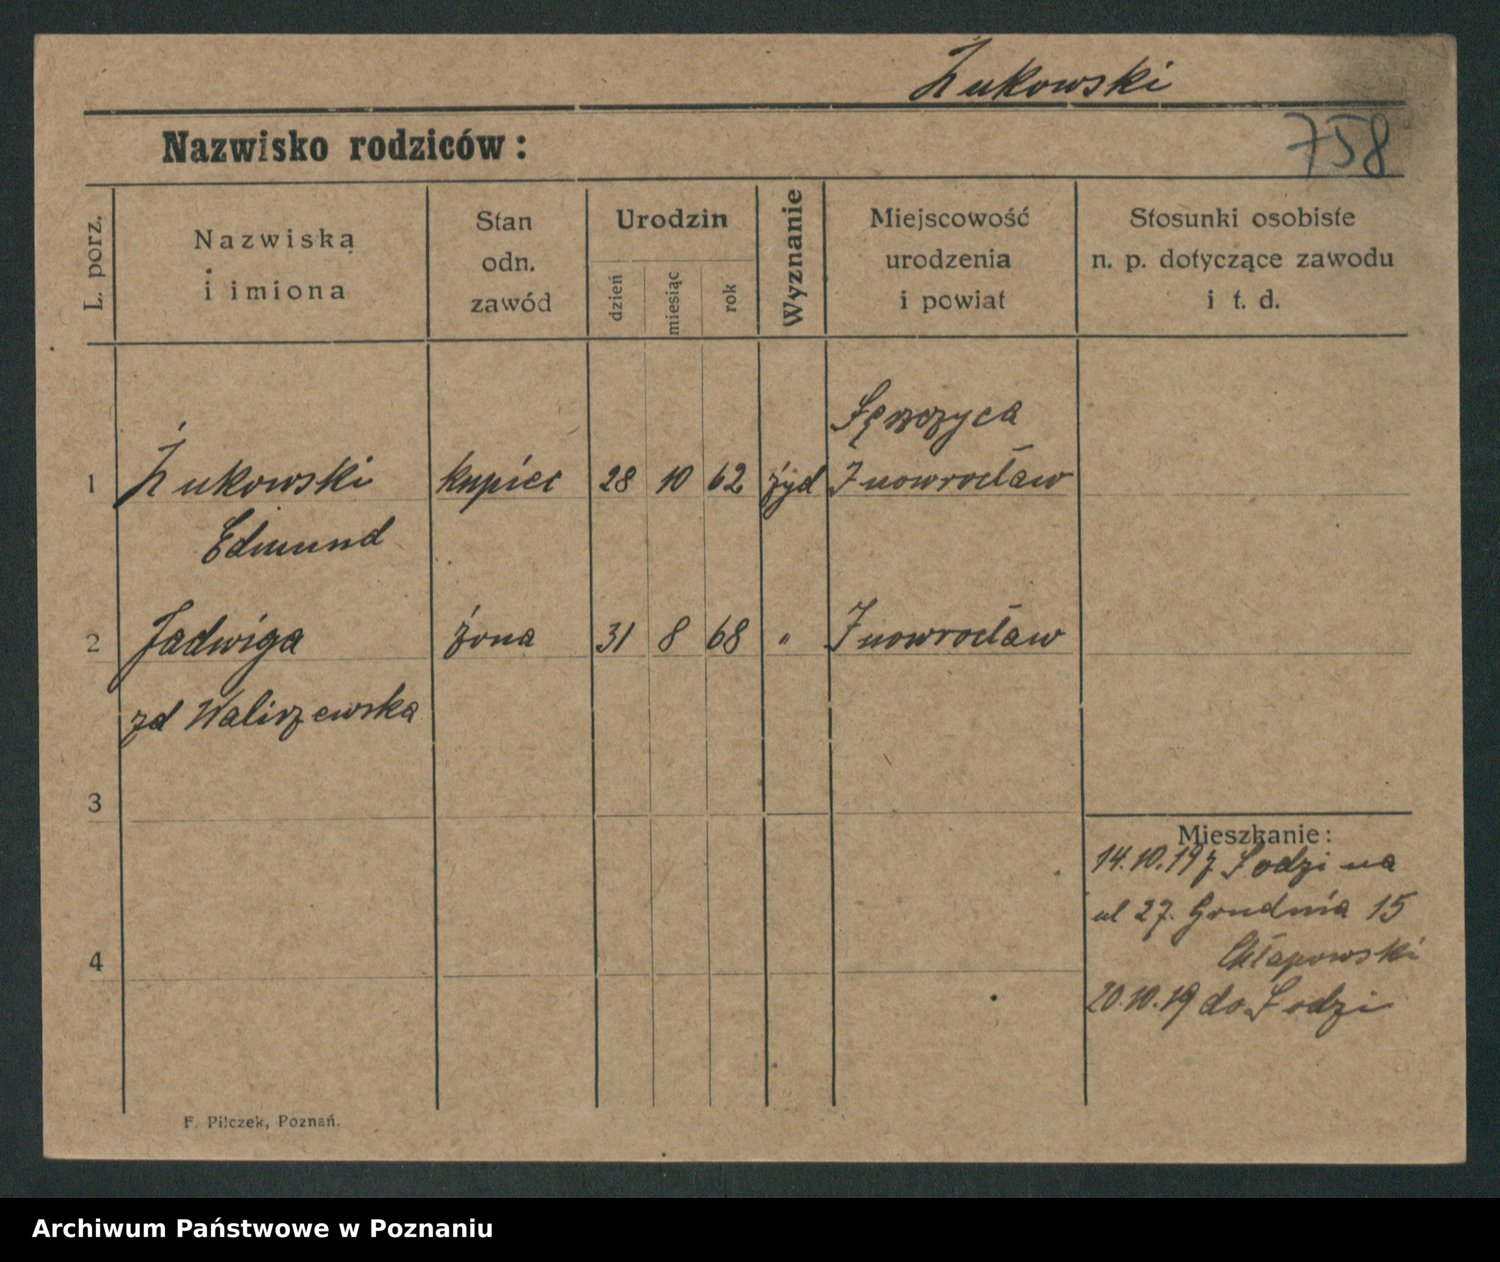 Żukowski
Nazwisko rodziców:
758
L. porz.
Nazwiska
i imiona
Stan
odn.
zawód
Urodzin
dzień
miesiąc
rok
Wyznanie
Miejscowość
urodzenia
i powiat
Stosunki osobiste
n. p. dotyczące zawodu
i t. d.
1 Żukowski kupiec 28 10 62 żyd Inowrocław
Edmund
2 Jadwiga żona 31 8 68 " Inowrocław
zd Waliszewska
3
Mieszkanie:
14.10.19 z Łodzi na
ul 27. Grudnia 15
Chłapowski
4
20.10.19 do Łodzi
F. Pilczek, Poznań.
Archiwum Państwowe w Poznaniu